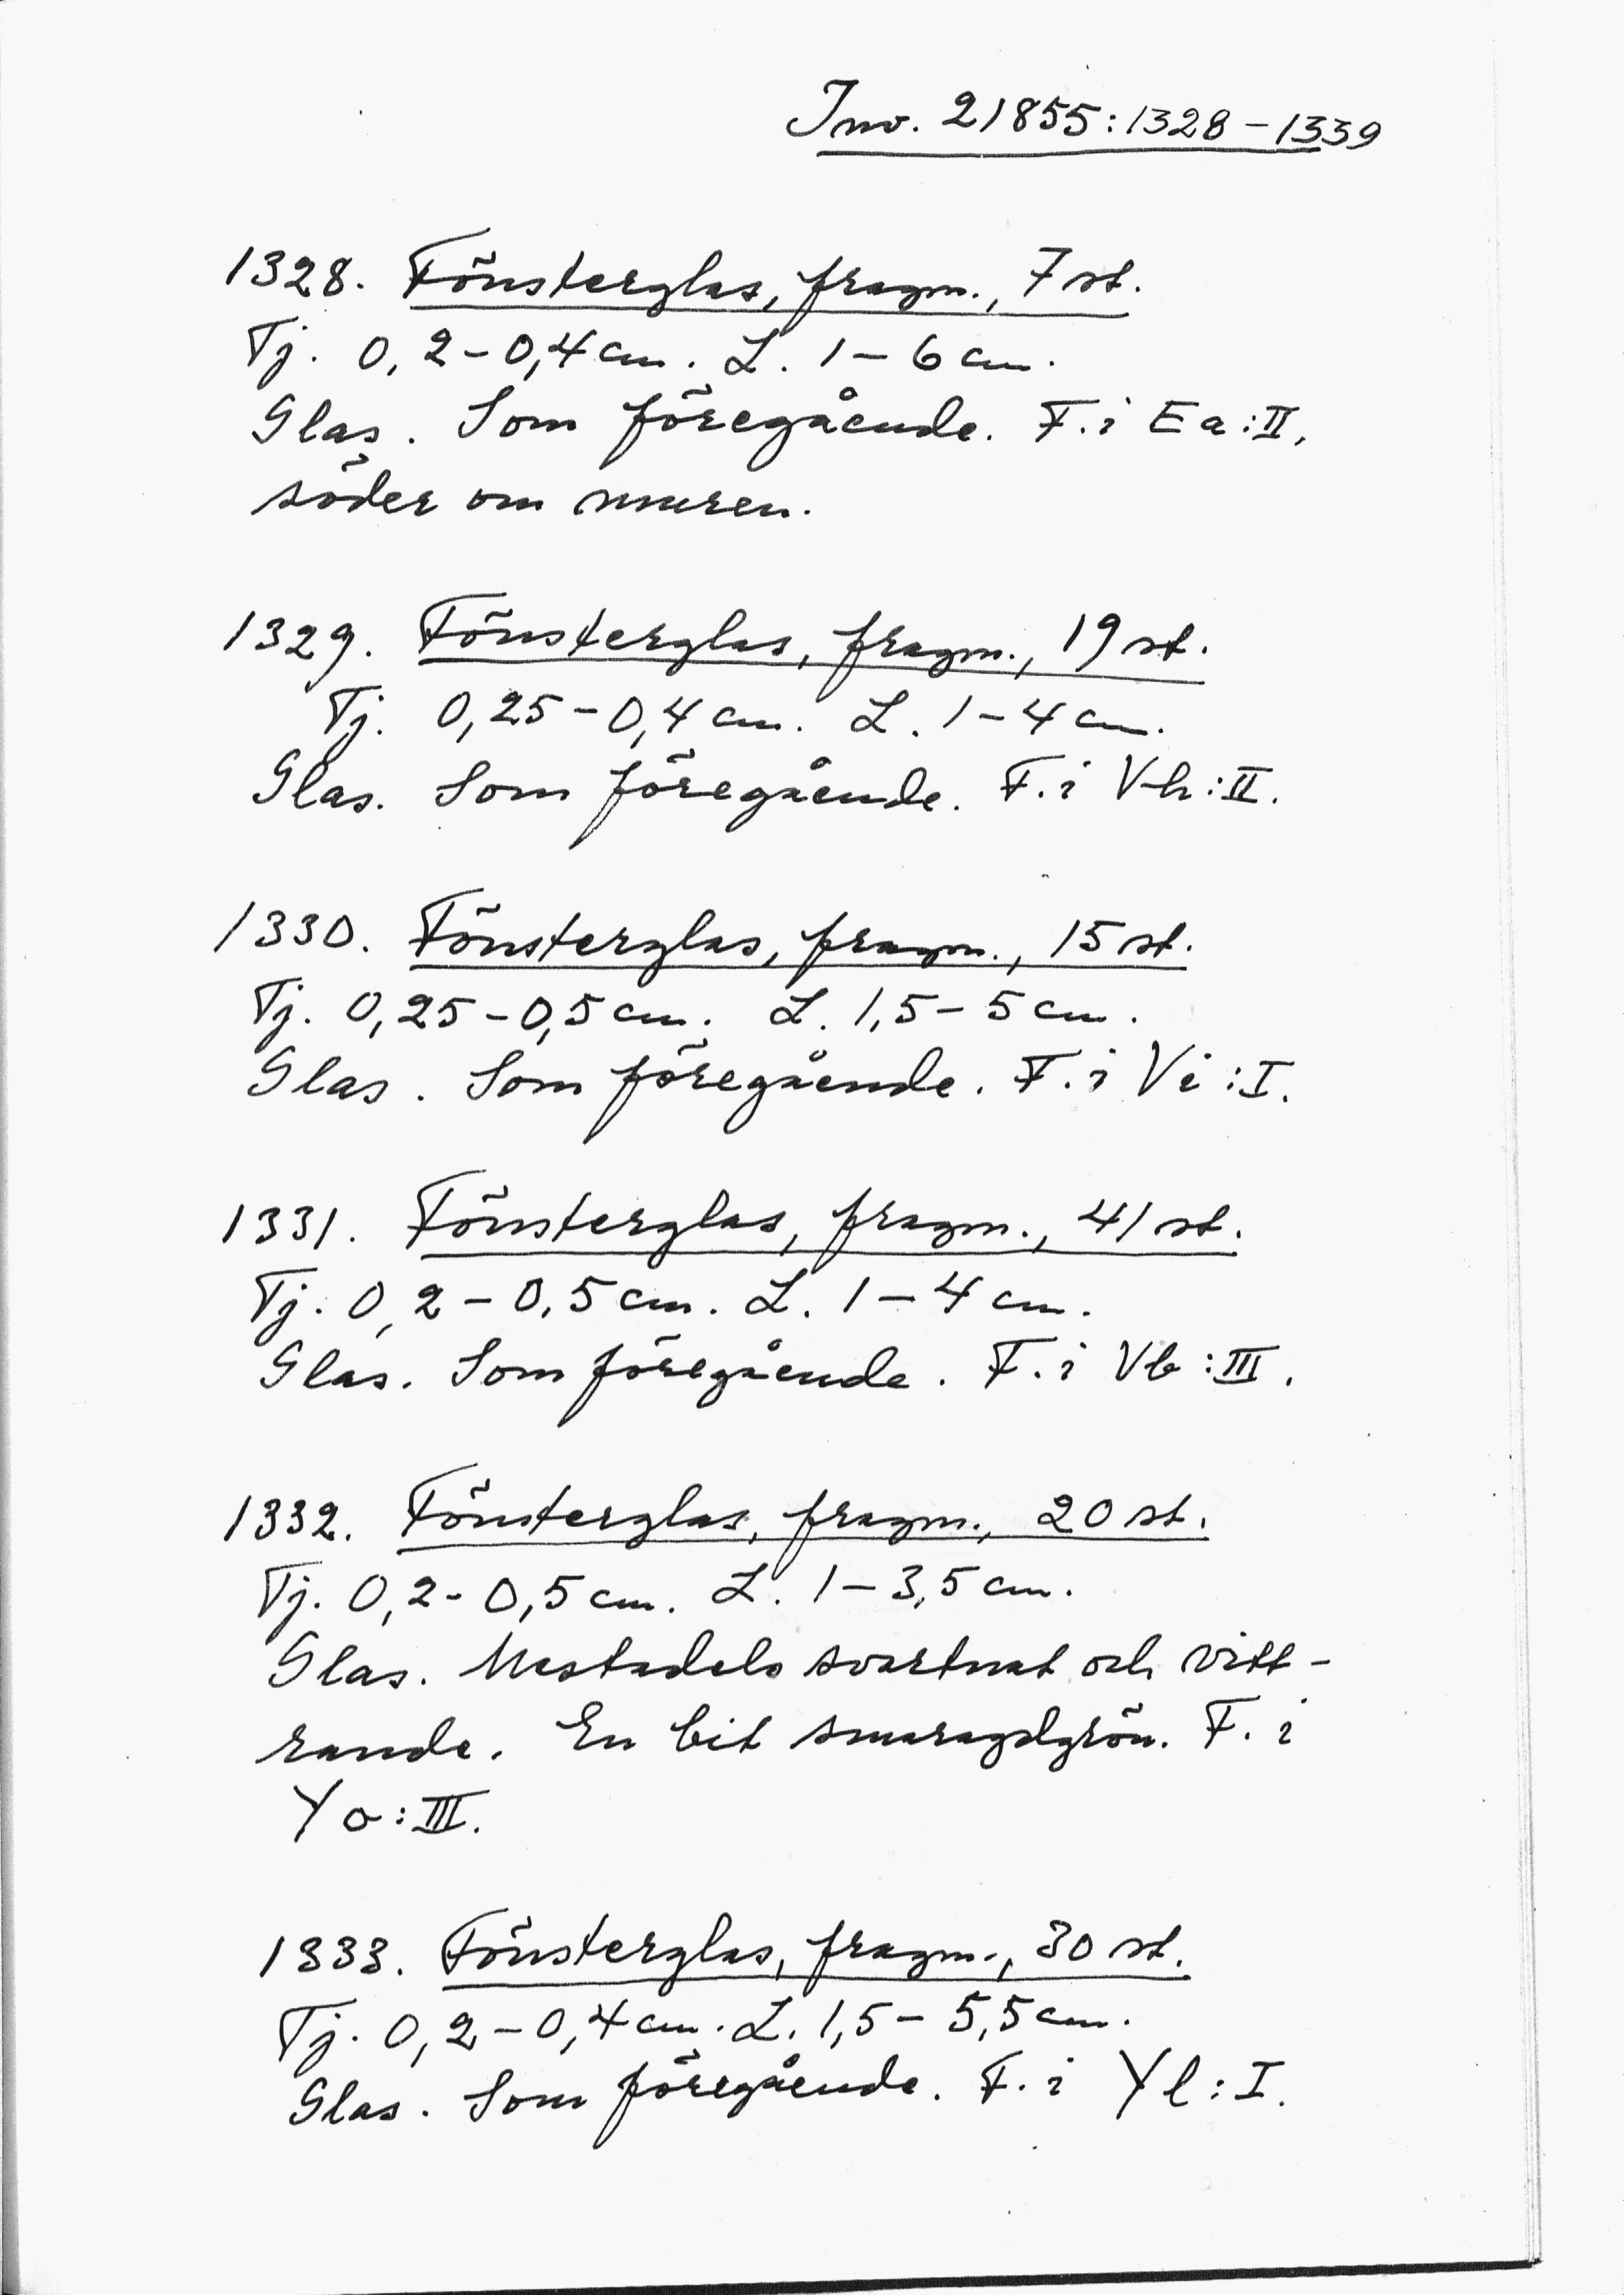 Inv. 21855:1328-1339
1328. Fönsterglas, fragm., 7 st.
Tj. 0,2-0,4 cm. L. 1-6 cm.
Glas. Som föregående. F. i Ea:II,
söder om muren.
1329. Fönsterglas, fragm., 19 st.
Tj. 0,25-0,4 cm. L. 1-4 cm.
Glas. Som föregående. F. i Vh:II.
1330. Fönsterglas, fragm., 15 st.
Tj. 0,25-0,5 cm. L. 1,5-5 cm.
Glas. Som föregående. F. i Vi:I.
1331. Fönsterglas, fragm., 41 st.
Tj. 0,2-0,5 cm. L. 1-4 cm.
Glas. Som föregående. F. i Vb:III.
1332. Fönsterglas, fragm., 20 st.
Tj. 0,2-0,5 cm. L. 1-3,5 cm.
Glas. Mestadels svartnat och vitt-
rande. En bit smaragdgrön. F. i
Yo:III.
1333. Fönsterglas, fragm., 30 st.
Tj. 0,2-0,4 cm. L. 1,5-5,5 cm.
Glas. Som föregående. F. i Yl:I.